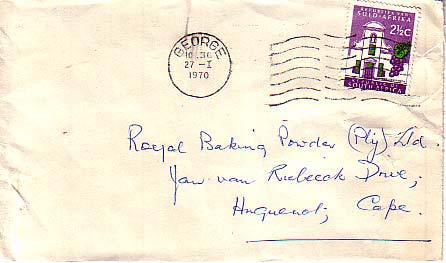 REPUBLIEK VAN
SUID-AFRIKA
2½C
REPUBLIC OF
SOUTH AFRICA
GEORGE
27 –I
1970
Royal Baking Powder (Pty) Ltd.
Jan van Riebeeck Drive,
Huguenot, Cape.